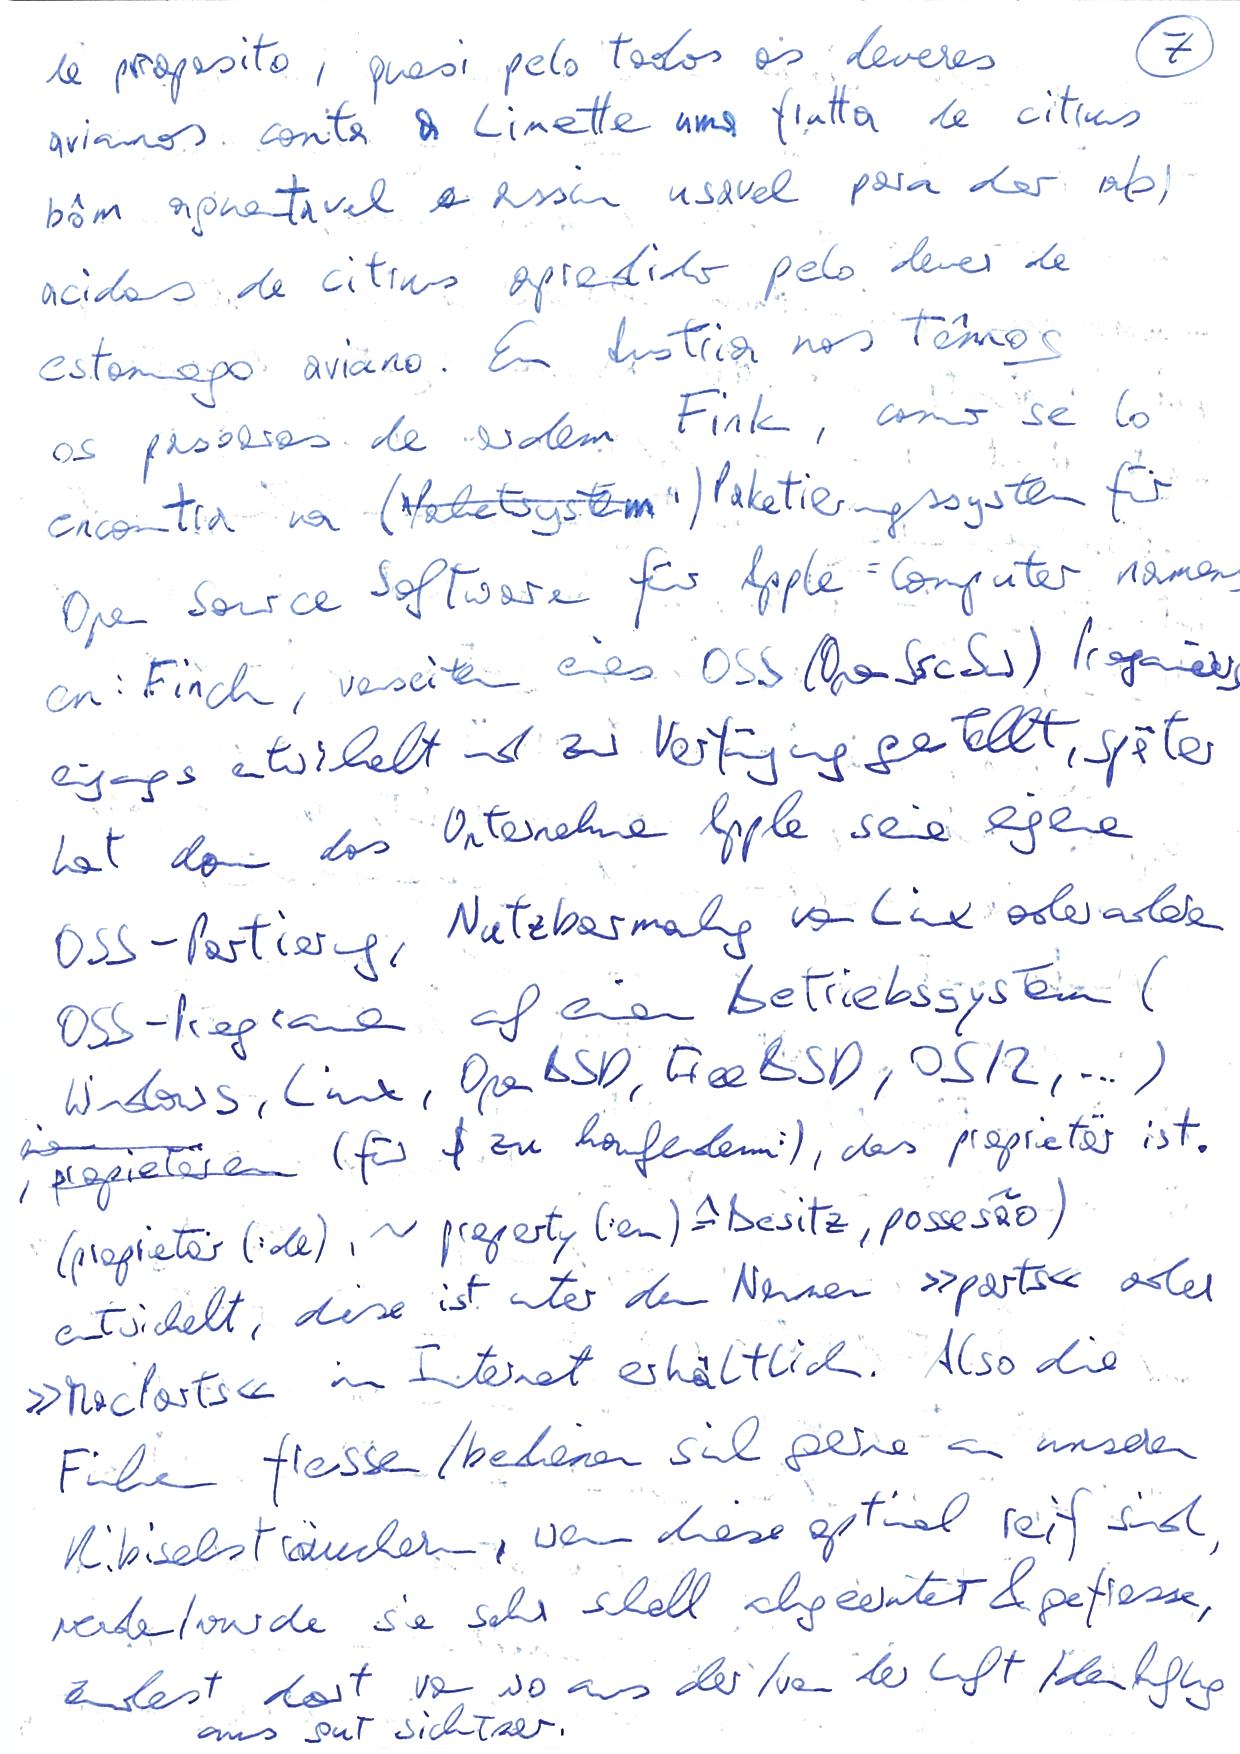 de proposito, quasi pelo todos os deveres 7
avianos conta a Limette uma frutta de citrus
bôm aguentável e assim usável para dar
acidos de citrus apredido pelo dever de
estomago aviano. En Austria nos têmos
os passeres de ordem Fink, como se lo
encontra na ("Paketsystem") Paketierungssystem für
Open Source Software für Apple=Computer namens
en: Finch, vonseiten eines OSS (OpenSrcSw)
eigangs entwikelt und zur Verfügung gestellt, später
hat dann das Unternehmen Apple seine eigene
OSS-Portierung, Nutzbarmachung von Linux oder anderen
OSS-Programmen auf einem Betriebssystem (
Windows, Linux, OpenBSD, FreeBSD, OS/2, ...)
, propietären (für $ zu kaufendem:), das propietär ist.
(propietär (:de), ~ property (:en) ≙ Besitz, possesão)
entwickelt, diese ist unter dem Namen »ports« oder
»MacPorts« im Internet erhältlich. Also die
Finken fressen/bedienen sich gerne an unseren
Ribiselsträuchern, wenn diese optimal reif sind,
werden/wurden sie sehr schnell abgeerntet & gefressen,
zumindest dort von wo aus der/von der Luft
aus gut sichtbar.